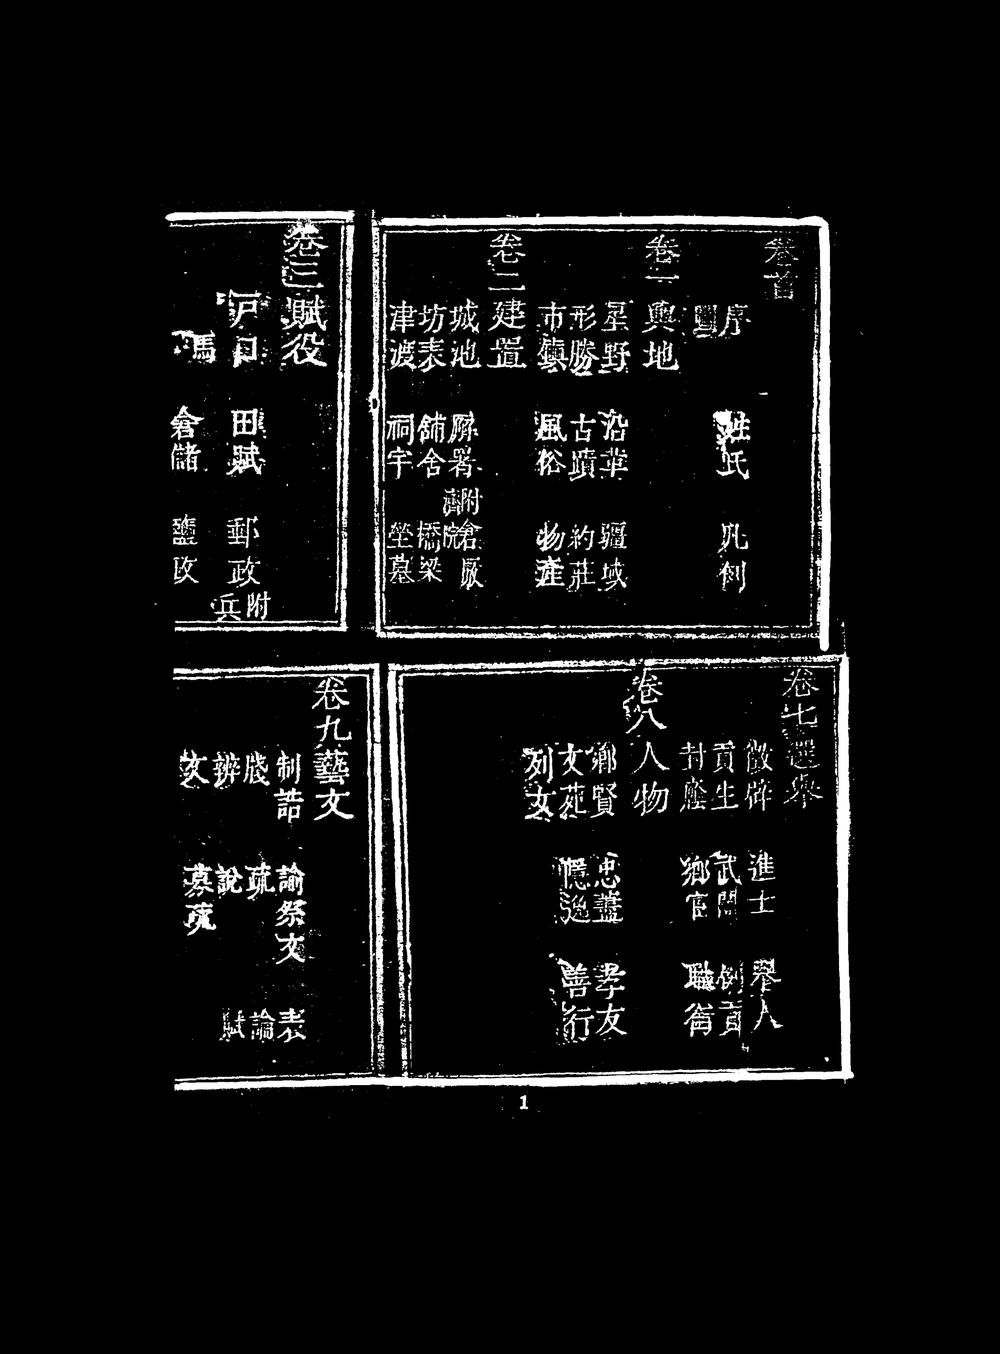 卷首
序 姓氏 凡例
圖
卷一輿地
星野 沿革 疆域
形勝 古蹟 約莊
市鎮 風俗 物產
卷二建置
城池 廨署 附倉厫
濟院
坊表 舖舍 橋梁
津渡 祠宇 塋墓
卷三賦役
戶口 田賦 郵政 附
兵
馬 倉儲 鹽政
卷七選舉
徵辟 進士 舉人
貢生 武閫 例貢
封廕 鄉宦 職銜
卷八人物
鄉賢 忠藎 孝友
文苑 隱逸 善行
列女
卷九藝文
制誥 諭祭文 表
牋 疏 論
辨 說 賦
文 募疏
1